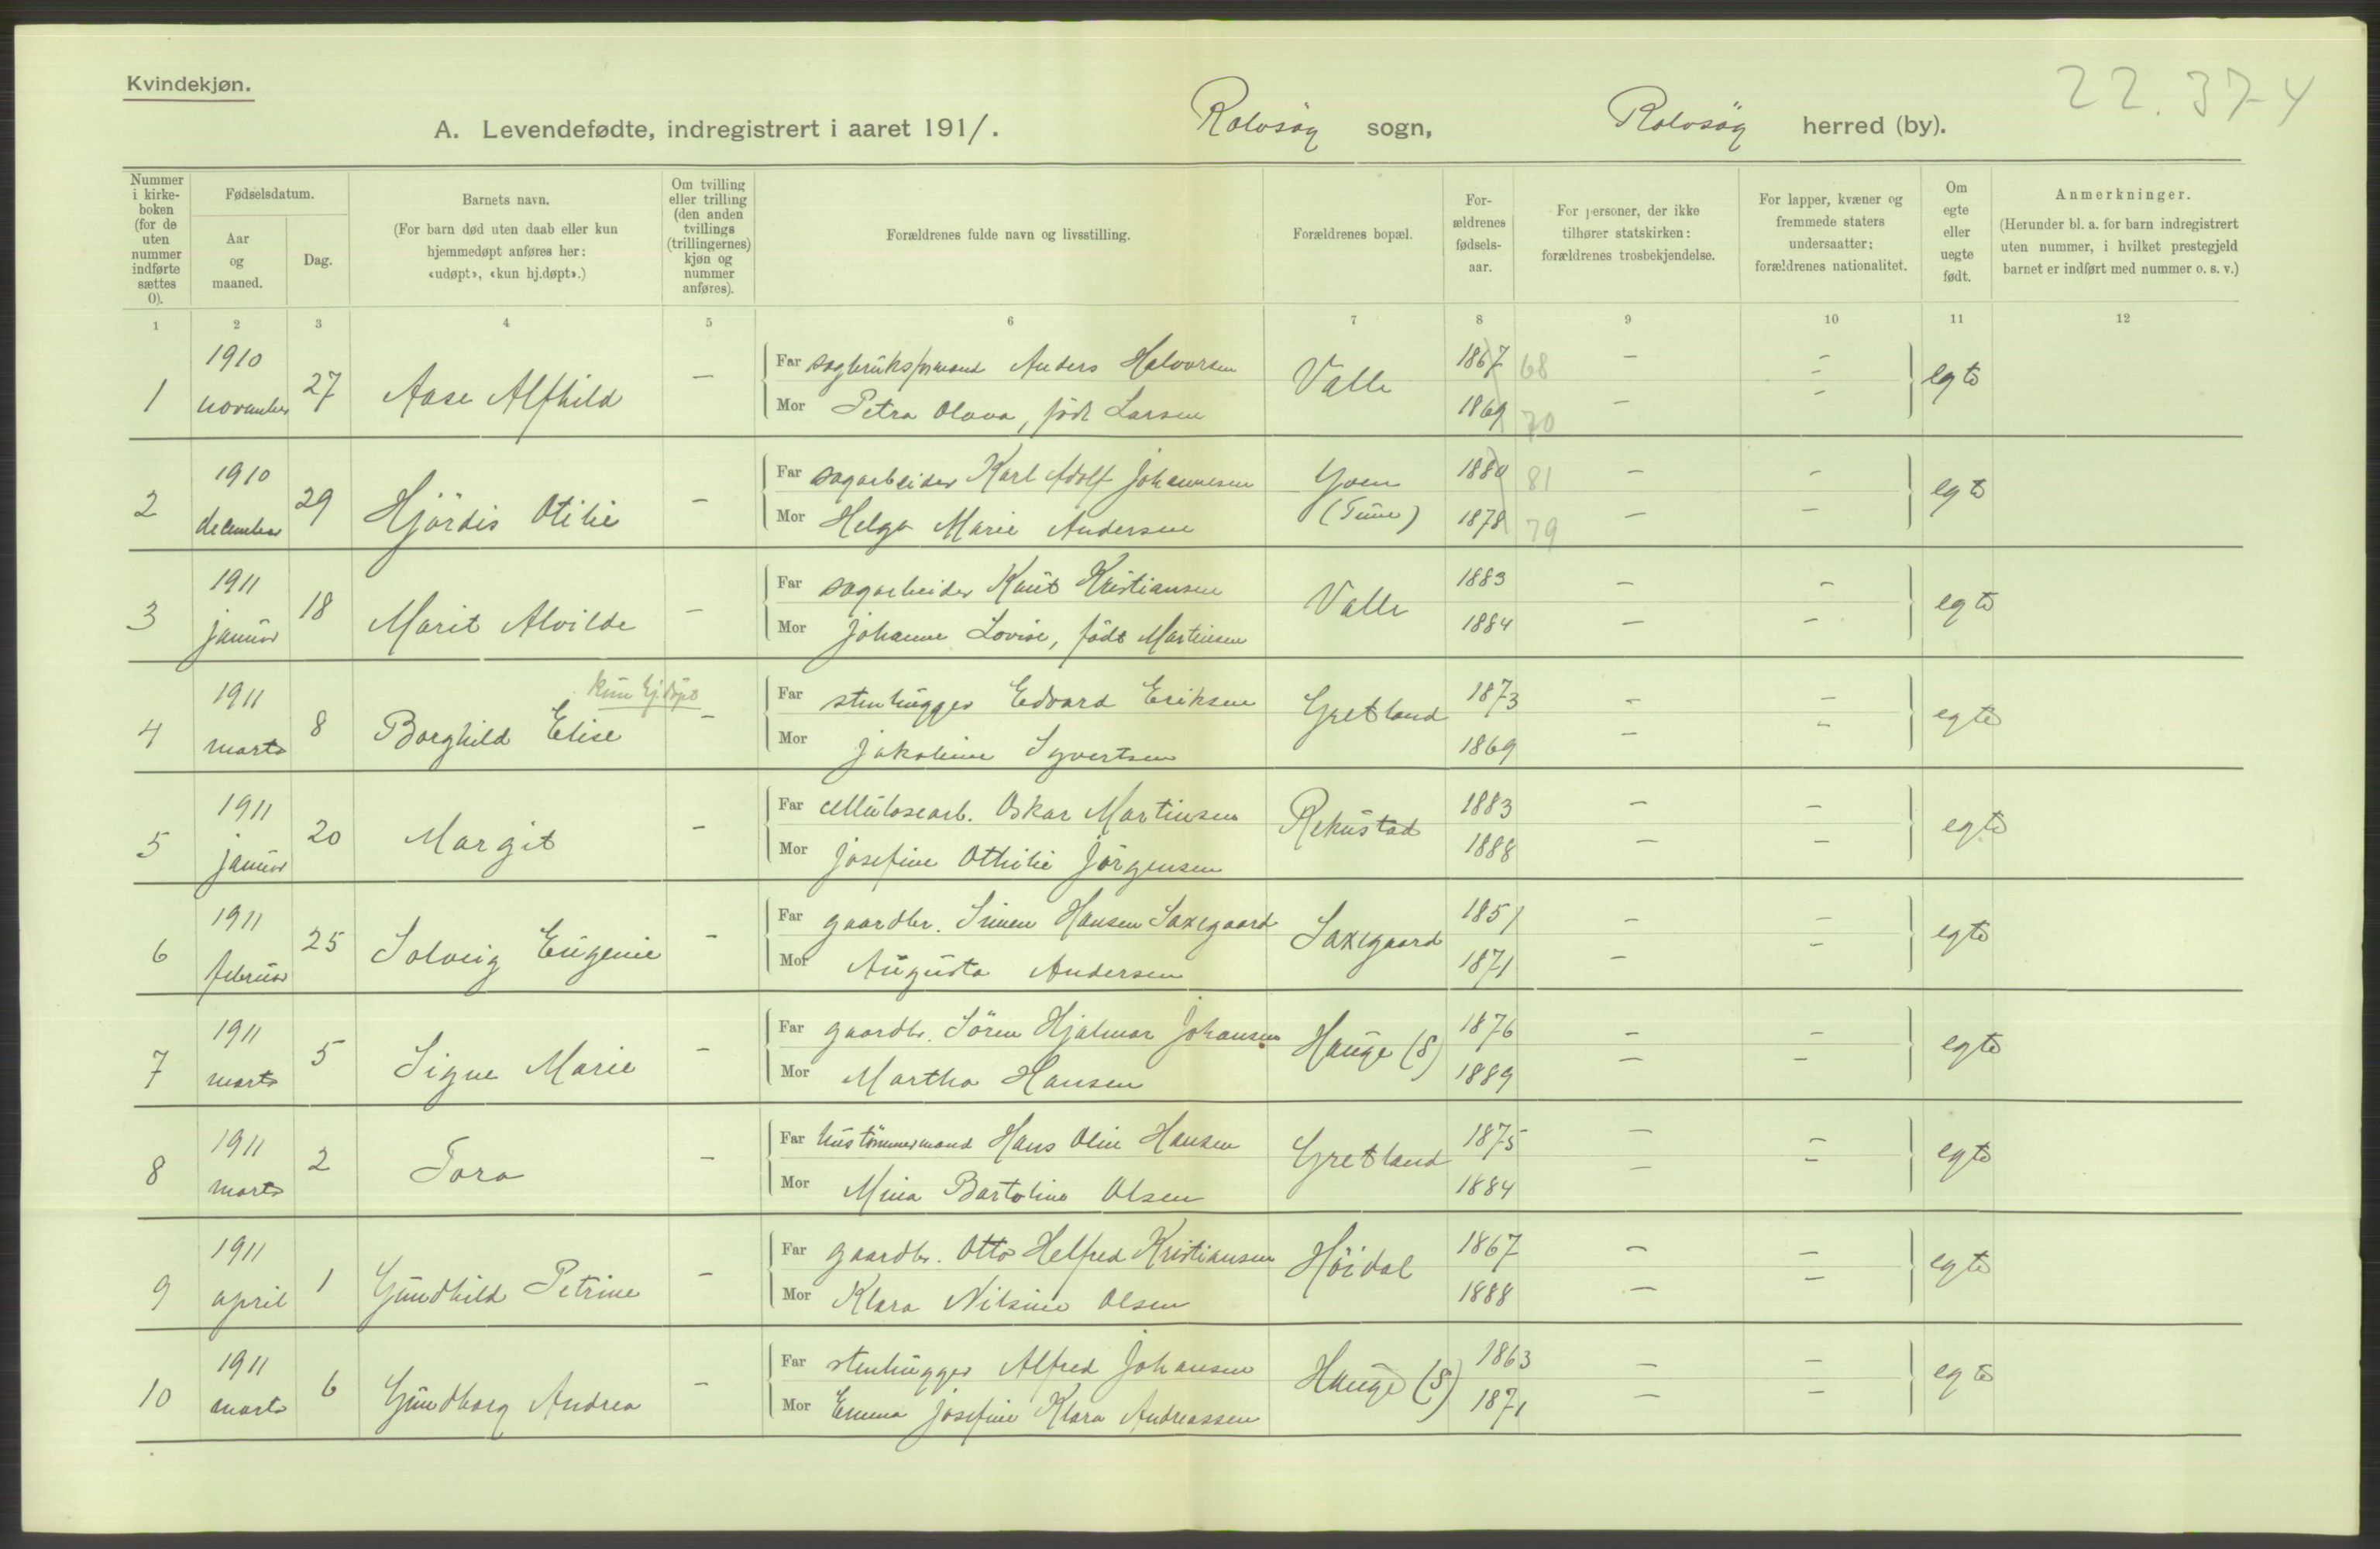 Kvindekjøn.
22. 37-4
A. Levendefødte, indregistrert i aaret 1911. Rolvsöy sogn, Rolvsöy herred (by).
Nummer i kirke-boken (for de uten nummer indførte sættes 0).
Fødselsdatum.
Aar og maaned.
Dag.
Barnets navn.
(For barn død uten daab eller kun hjemmedøpt anføres her: «udøpt», «kun hj.døpt».)
Om tvilling eller trilling (den anden tvillings (trillingernes) kjøn og nummer anføres).
Forældrenes fulde navn og livsstilling.
Forældrenes bopæl.
For-ældrenes fødsels-aar.
For personer, der ikke tilhører statskirken: forældrenes trosbekjendelse.
For lapper, kvæner og fremmede staters undersaatter: forældrenes nationalitet.
Om egte eller uegte født.
Anmerkninger.
(Herunder bl. a. for barn indregistrert uten nummer, i hvilket prestegjeld barnet er indført med nummer o. s. v.)
1 2 3 4 5 6 7 8 9 10 11 12
1 1910 november 27 Aase Alfhild — Far sagbruksformand Anders Halvorsen Valle 1867 68 — — egte
Mor Petra Olava, född Larsen 1869 70 — —
2 1910 december 29 Hjördis Otilie — Far sagarbeider Karl Adolf Johannesen Yven (Tune) 1880 81 — — egte
Mor Helga Marie Andersen 1878 79 — —
3 1911 januar 18 Marit Alvilde — Far sagarbeider Knut Kristiansen Valle 1883 — — egte
Mor Johanne Lovise, födt Martinsen 1884 — —
4 1911 marts 8 Borghild Elise kun hj.döpt — Far stenhugger Edvard Eriksen Gretland 1873 — — egte
Mor Jakobine Syvertsen 1869 — —
5 1911 januar 20 Margit — Far cellulosearb. Oskar Martinsen Rekustad 1883 — — egte
Mor Josefine Othilie Jörgensen 1888 — —
6 1911 februar 25 Solveig Eugenie — Far gaardbr. Simen Hansen Saxegaard Saxegaard 1851 — — egte
Mor Augusta Andersen 1871 — —
7 1911 marts 5 Signe Marie — Far gaardbr. Sören Hjalmar Johansen Hauge (S) 1876 — — egte
Mor Martha Hansen 1889 — —
8 1911 marts 2 Tora — Far hustömmermand Hans Olin Hansen Gretland 1875 — — egte
Mor Mina Bartoline Olsen 1884 — —
9 1911 april 1 Gundhild Petrine — Far gaardbr. Otto Helfred Kristiansen Höidal 1867 — — egte
Mor Klara Nilsine Olsen 1888 — —
10 1911 marts 6 Gundborg Andrea — Far stenhugger Alfred Johansen Hauge (S) 1863 — — egte
Mor Emma Josefine Klara Andreassen 1871 — —